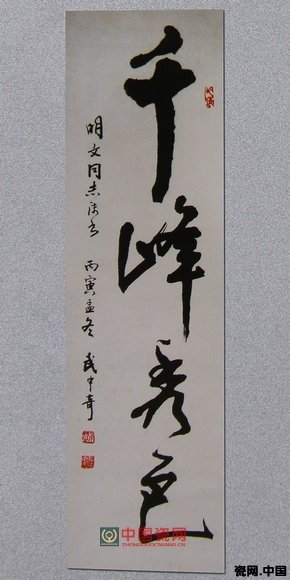 千峰秀色
明文同志法正
丙寅孟冬 武中奇
中国瓷网
ZHONGGUOCIWANG.CN
瓷网.中国